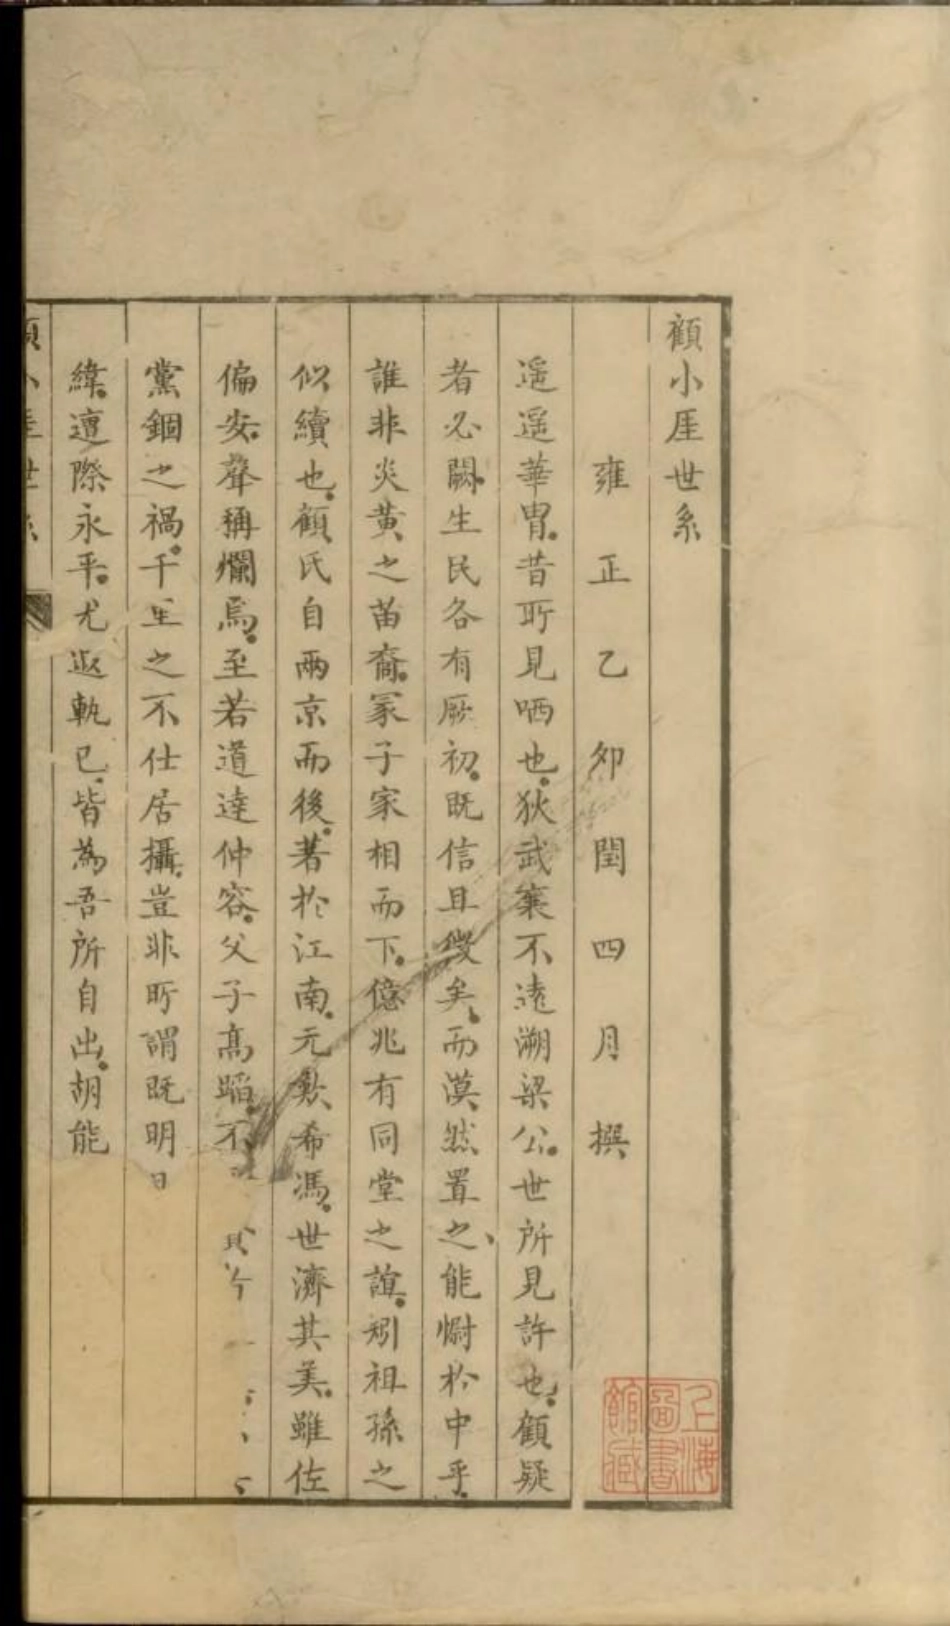 顧小厓世系
雍正乙夘閏四月撰
遥遥華胄昔所見哂也狄武襄不遠溯梁公世所見許也顧疑
者必闕生民各有厥初既信且徵矣而漠然置之能懨於中乎
誰非炎黃之苗裔冡子家相而下億兆有同堂之誼矧祖孫之
似續也顧氏自兩京而後著於江南元歎希馮世濟其美雖佐
偏安聲稱爛焉至若道達仲容父子髙蹈不
黨錮之禍千里之不仕居攝豈非所謂既明
緯遭際永平尤遐軌已皆為吾所自出胡能
上海圖書館藏